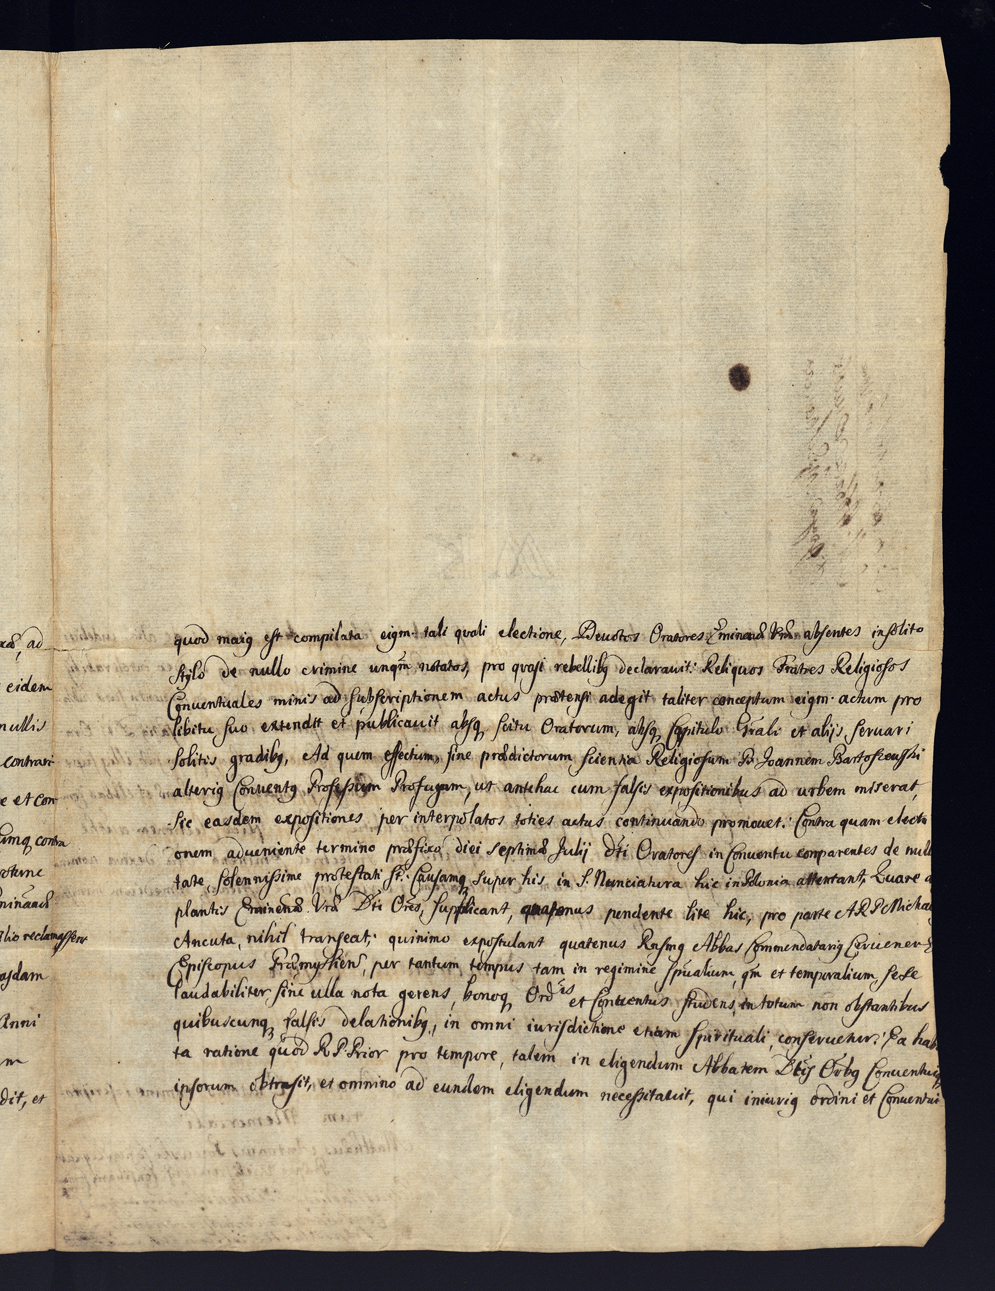 quod maiꝰ est compilata eiꝰm. tali quali electione, Devotos Oratores Eminæ Vræ absentes insolito
stylo de nullo crimine unqm̃ notatos, pro quasi rebellibꝰ declaravit: Reliquos Fratres Religiosos
Conventuales minis ad subscriptionem actus prætensi adegit taliter conceptum eiꝰm. actum pro
libitu suo extendit et publicauit absq, scitu Oratorum, absq, Capitulo Gr̃ali et alijs servari
solitis gradibꝰ, Ad quem effectum, sine prædictorum scientia Religiosum P. Joannem Bartoscewski
alteriꝰ Conventꝰ Professum Profugum, ut antehac cum falsis expositionibus ad urbem miserat,
sic easdem expositiones per interpolatos toties actus continuando promouet. Contra quam electi
onem adueniente termino præfixo diei septimæ Julij Dt̃i Oratores in Conventu comparentes de nulli
tate, solennissime protestati st̃. Causamq, super his, in S. Nunciatura hic in Polonia attentant, Quare
plantis Eminenæ Vræ Dt̃i Ores, supplicant, quatenus pendente lite hic, pro parte A R P Michae
Ancuta, nihil transeat; quinimo expostulant quatenus Rnsmꝰ Abbas Commendatariꝰ Cervenen
Episcopus Præmyslien, per tantum tempus tam in regimine Spũalium, qm̃ et temporalium, sese
laudabiliter sine ulla nota gerens, bonoq, Ordĩs et Conventus studens, in totum non obstantibus
quibuscunq, falsis delationibꝰ, in omni iurisdictione etiam spirituali, conseruetur. Ea hab
ta ratione quod R. P. Prior pro tempore, talem in eligendum Abbatem Dt̃is Orbꝰ Conventui
ipsorum obtrusit, et omnino ad eundem eligendum necessitavit, qui iniuriꝰ ordini et Conventui
ad
eidem
nullis
contrari
et con
contra
reclamassent
asdam
Anni
dit, et